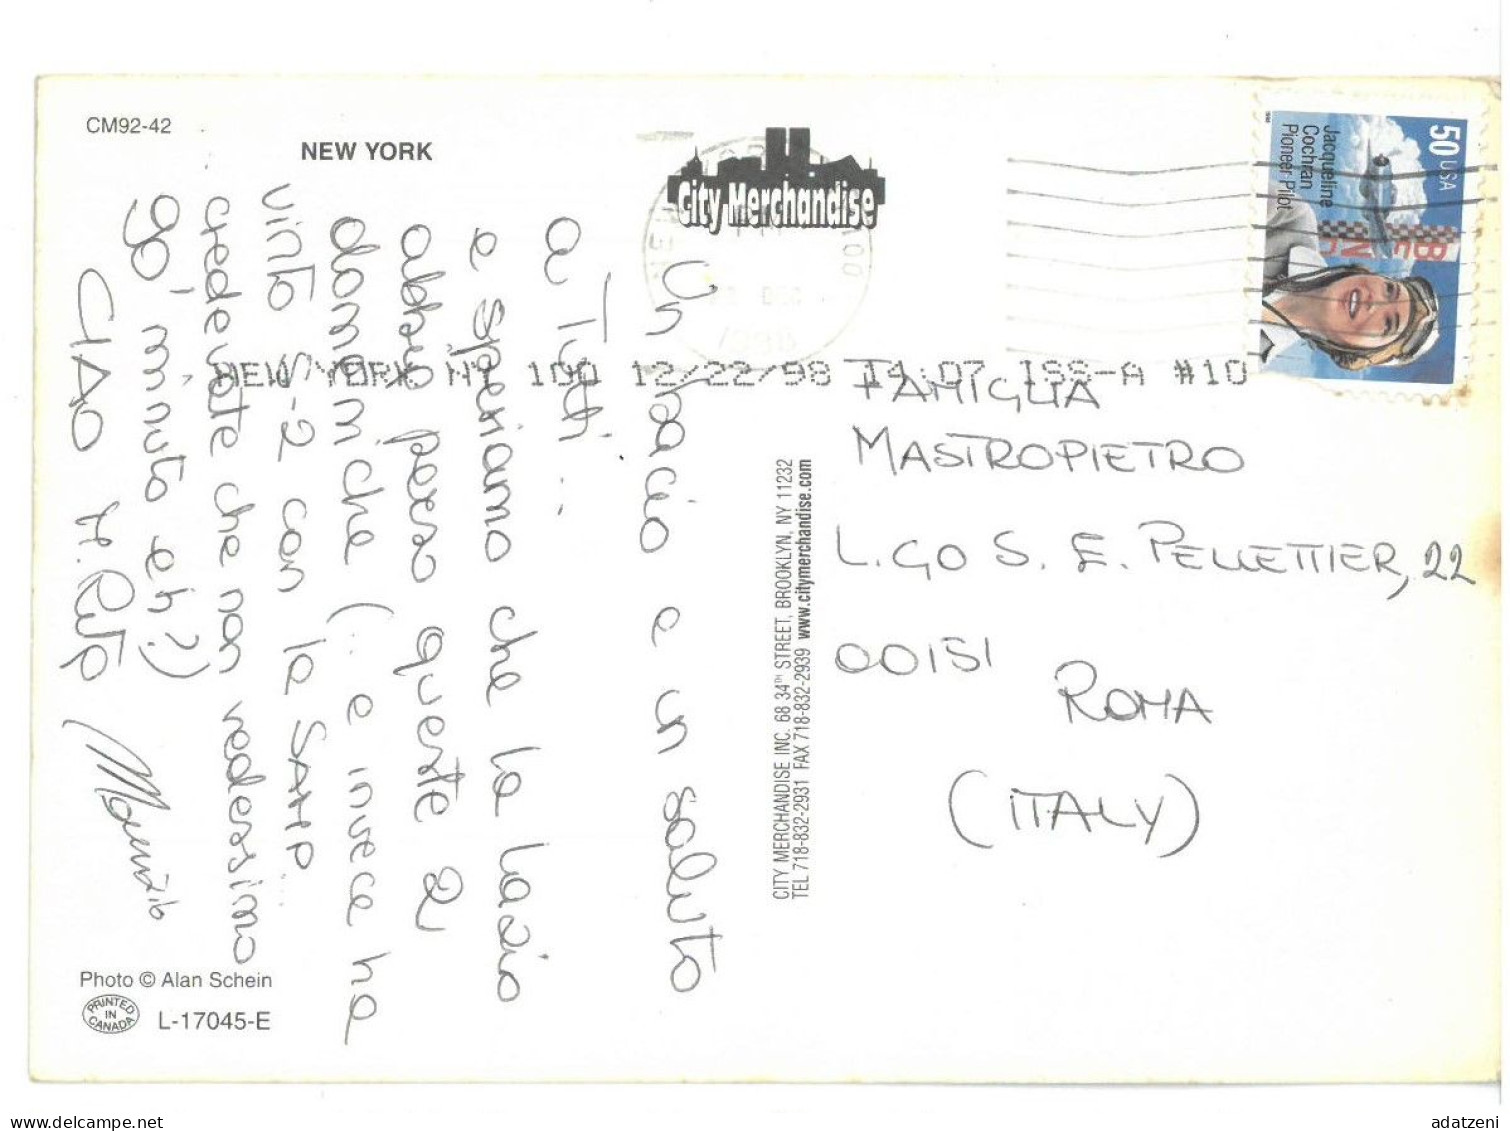 CM92-42
NEW YORK
Un bacio e un saluto
a Tutti...
e speriamo che la Lazio
abbia perso queste 2
domeniche (.. e invece ha
vinto 5-2 con la SAMP...
credevate che non vedessimo
90' minuto eh?)
CIAO
Maurizio
Photo © Alan Schein
PRINTED IN CANADA
L-17045-E
City Merchandise
DEC
1998
NEW YORK NY 100 12/22/98 14:07 ISS-A #10
CITY MERCHANDISE INC. 68 34TH STREET, BROOKLYN, NY 11232
TEL 718-832-2931 FAX 718-832-2939 www.citymerchandise.com
50 USA
Jacqueline
Cochran
Pioneer Pilot
FAMIGLIA
MASTROPIETRO
L.GO S. E. PELLETTIER, 22
00151
ROMA
(ITALY)
adatzeni
delcampe.net